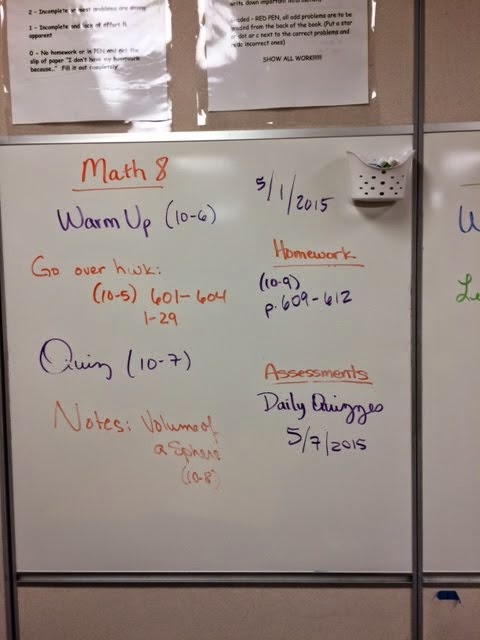 2 - Incomplete or most problems are wrong
1 - Incomplete and lack of effort is
apparent
0 - No homework or in PEN and not the
slip of paper "I don't have my homework
because.." Fill it out completely!
write down important
Graded - RED PEN, all odd problems are to be
graded from the back of the book. (Put a star
or dot or c next to the correct problems and
redo incorrect ones)
SHOW ALL WORK!!!!!
Math 8
Warm Up (10-6)
Go over hwk:
(10-5) 601-604
1-29
Quiz (10-7)
Notes: Volume of
a Sphere
(10-8)
5/1/2015
Homework
(10-9)
p. 609-612
Assessments
Daily Quizzes
5/7/2015
W
Le